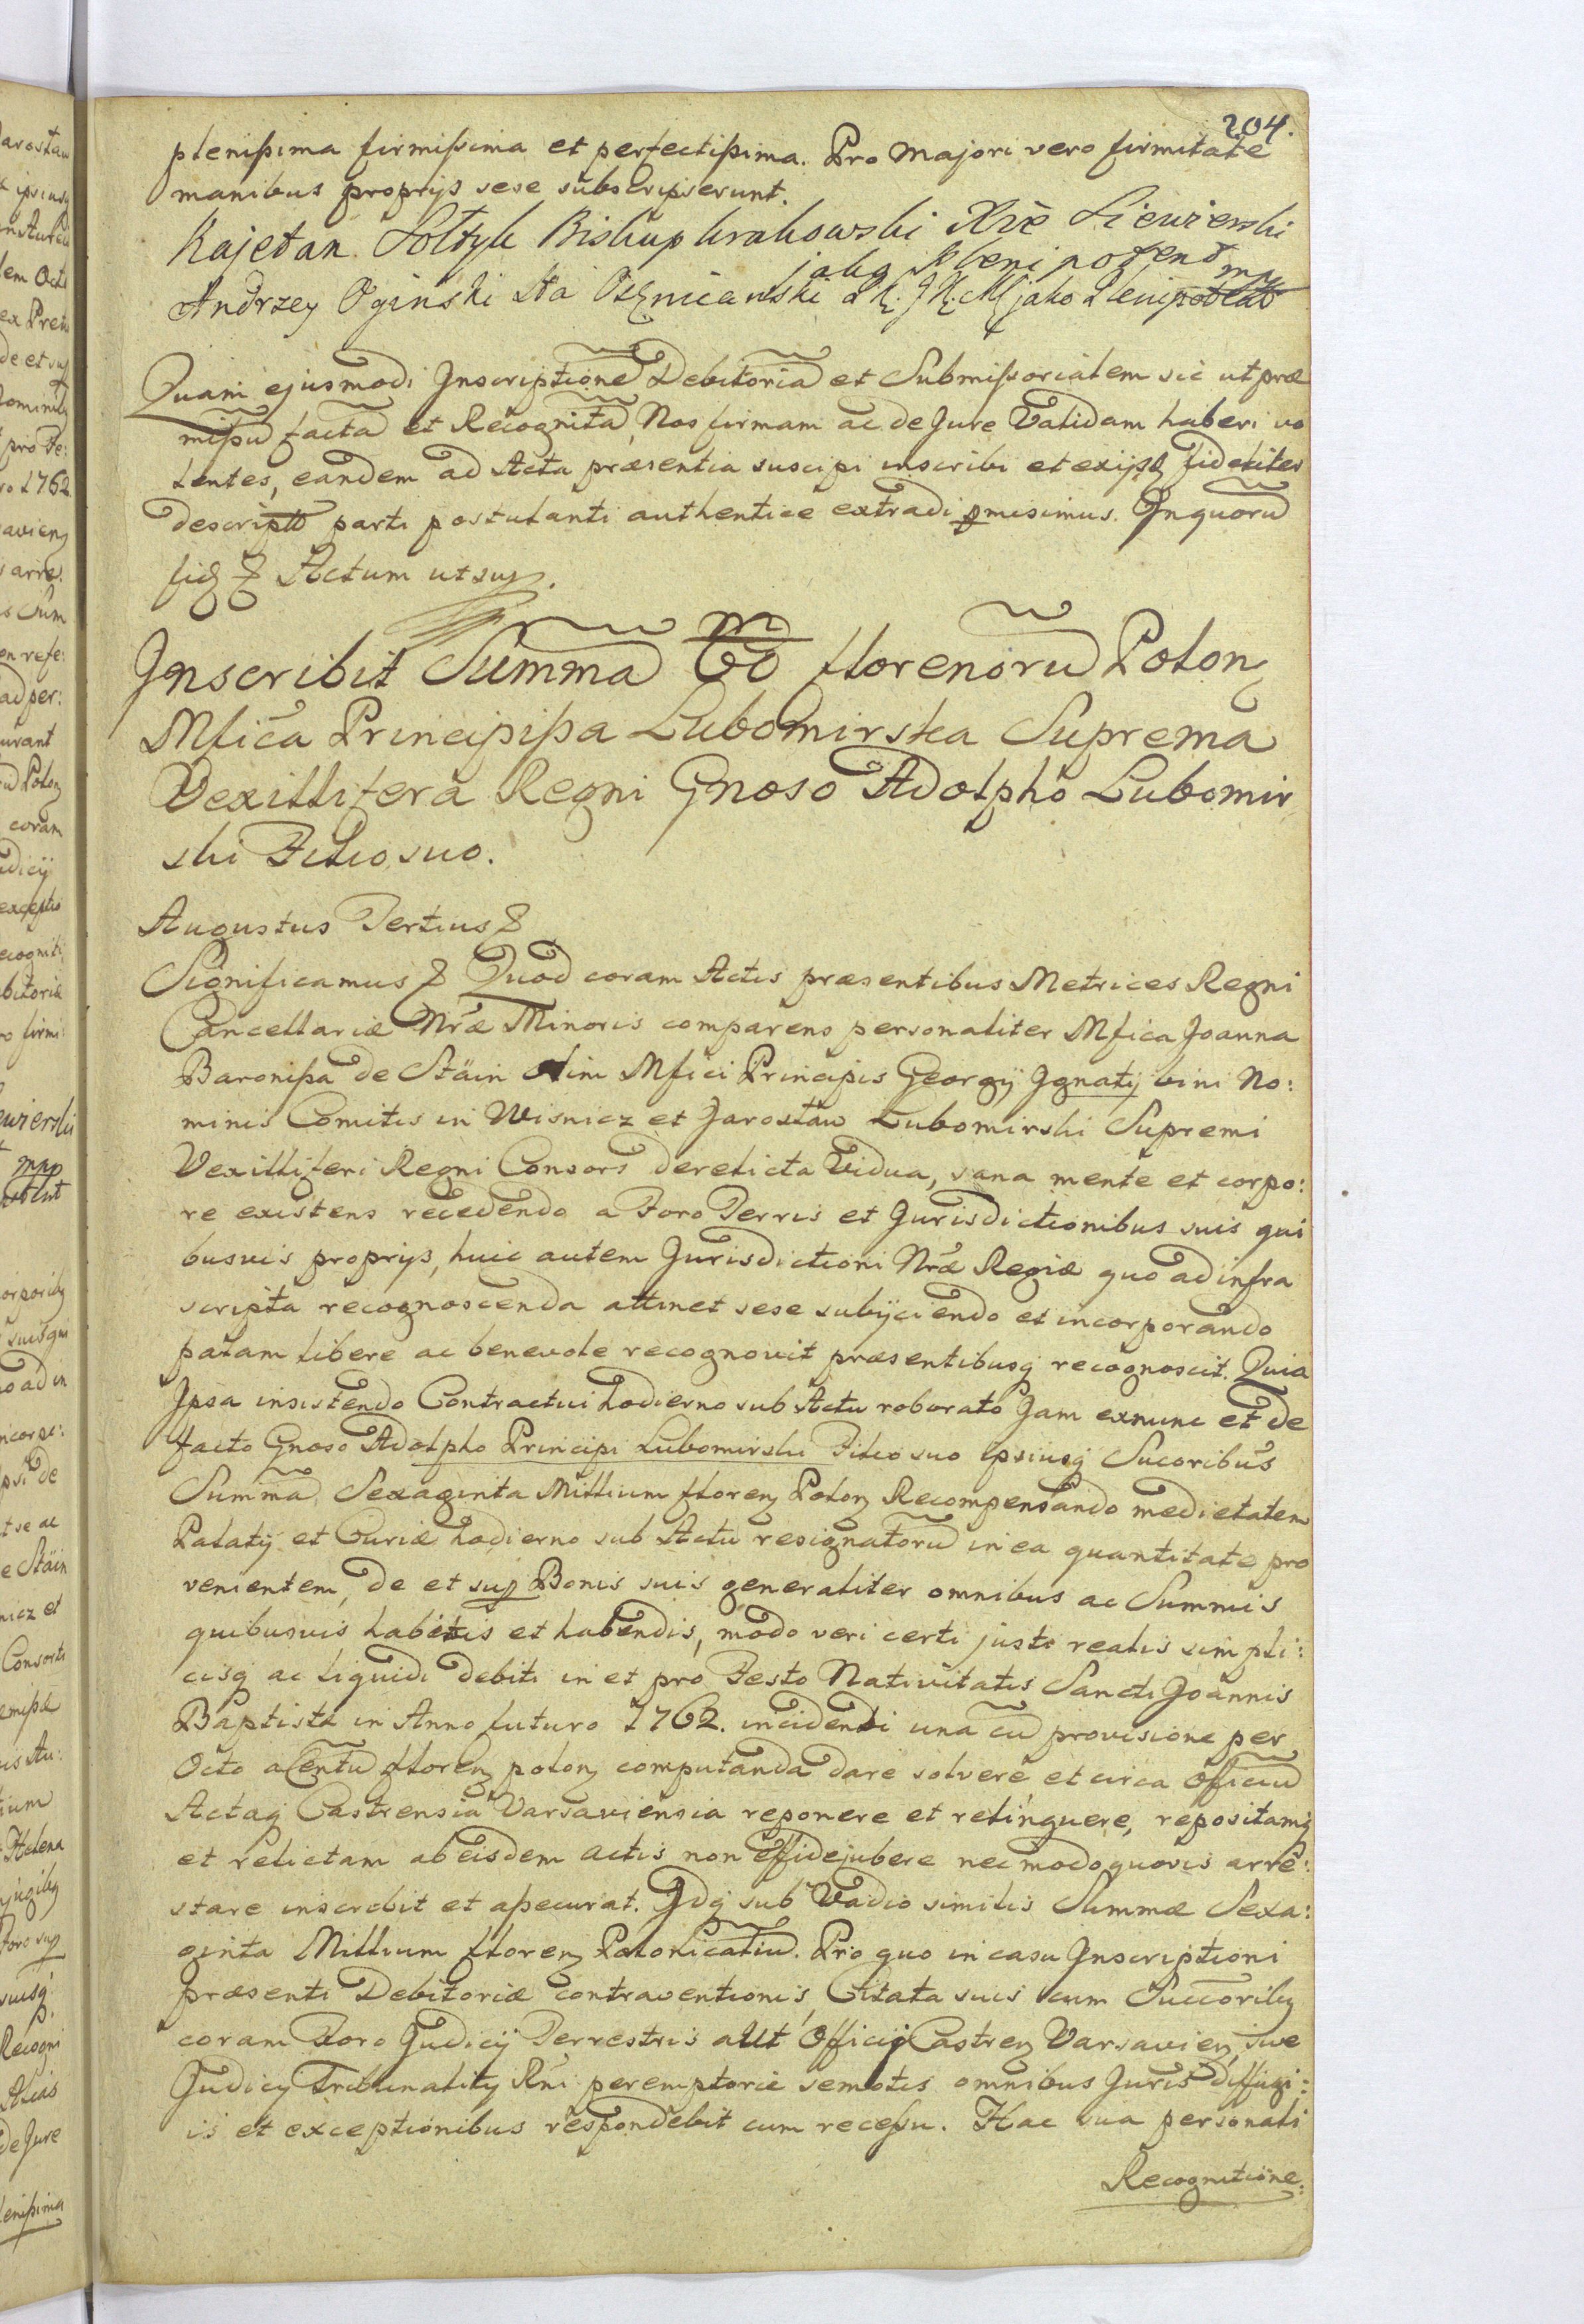 204.
plenißima firmißima et perfectißima. Pro majori vero firmitate
manibus proprijs sese subscripserunt.
Kajetan Sołtyk Biskup krakowski Xże Siewierski
jako plenipotent mp
Andrzey Oginski Sta Oszmianski d K. J K. M jako Plenipotent
Quam ejusmodi Inscriptione Debitoria et Submißorialem sic ut præ
mißu facta et Recognita, Nos firmam ac de Jure Validam haberi vo
lentes, eandem ad Acta præsentia suscipi inscribi et exijsq fideliter
descript parti postulanti authentice extradi pmisimus. In quoru
fid & Actum ut sup.
Inscribit Summa 60 m florenoru Polon
Mfica Principißa Lubomirska Suprema
Vexillifera Regni Gnoso Adolpho Lubomir
ski Filio suo.
Augustus Tertius &
Significamus & Quod coram Actis præsentibus Metrices Regni
Cancellariæ Nræ Minoris comparens personaliter Mfica Joanna
Baronißa de Stäin olim Mfici Principis Georgij Ignatij bini No:
minis Comitis in Wisnicz et Jarosław Lubomirski Supremi
Vexilliferi Regni Consors derelicta Vidua, sana mente et corpo:
re existens recedendo a Foro Terris et Jurisdictionibus suis qui
busvis proprijs, huic autem Jurisdictioni Nræ Regiæ quo ad infra
scripta recognoscenda attinet sese subijciendo et incorporando
palam libere ac benevole recognovit præsentibusq recognoscit. Quia
Ipsa insistendo Contractui hodierno sub Actu roborato Jam exnunc et de
facto Gnoso Adolpho Principi Lubomirski Filio suo ipsiusq Sucoribus
Summa Sexaginta Millium floren Polon Recompensando medietatem
Palatij et Curiæ hodierno sub Actu resignatoru in ea quantitate pro
venientem, de et sup Bonis suis generaliter omnibus ac Summis
quibusvis habitis et habendis, modo veri certi justi realis simpli:
cisq ac liquidi debiti in et pro Festo Nativitatis Sancti Joannis
Baptistæ in Anno futuro 1762. incidenti una cu provisione per
Octo a Centu floren polon computanda dare solvere et circa Officiu
Actaq Castrensia Varsaviensia reponere et relinquere, repositamq
et relictam ab eisdem actis non effidejubere nec modo quovis arre:
stare inscribit et aßecurat. Idq sub Vadio similis Summæ Sexa:
ginta Millium floren Polonicaliu. Pro quo in casu Inscriptioni
præsenti Debitoriæ contraventionis, Citata suis cum Succoribq
coram Foro Judicij Terrestris aut Officij Castren Varsavien, sive
Judicij Tribunalitij Rni peremptorie semotis omnibus Juris diffugi:
is et exceptionibus respondebit cum receßu. Hac sua personali
Recognitione: